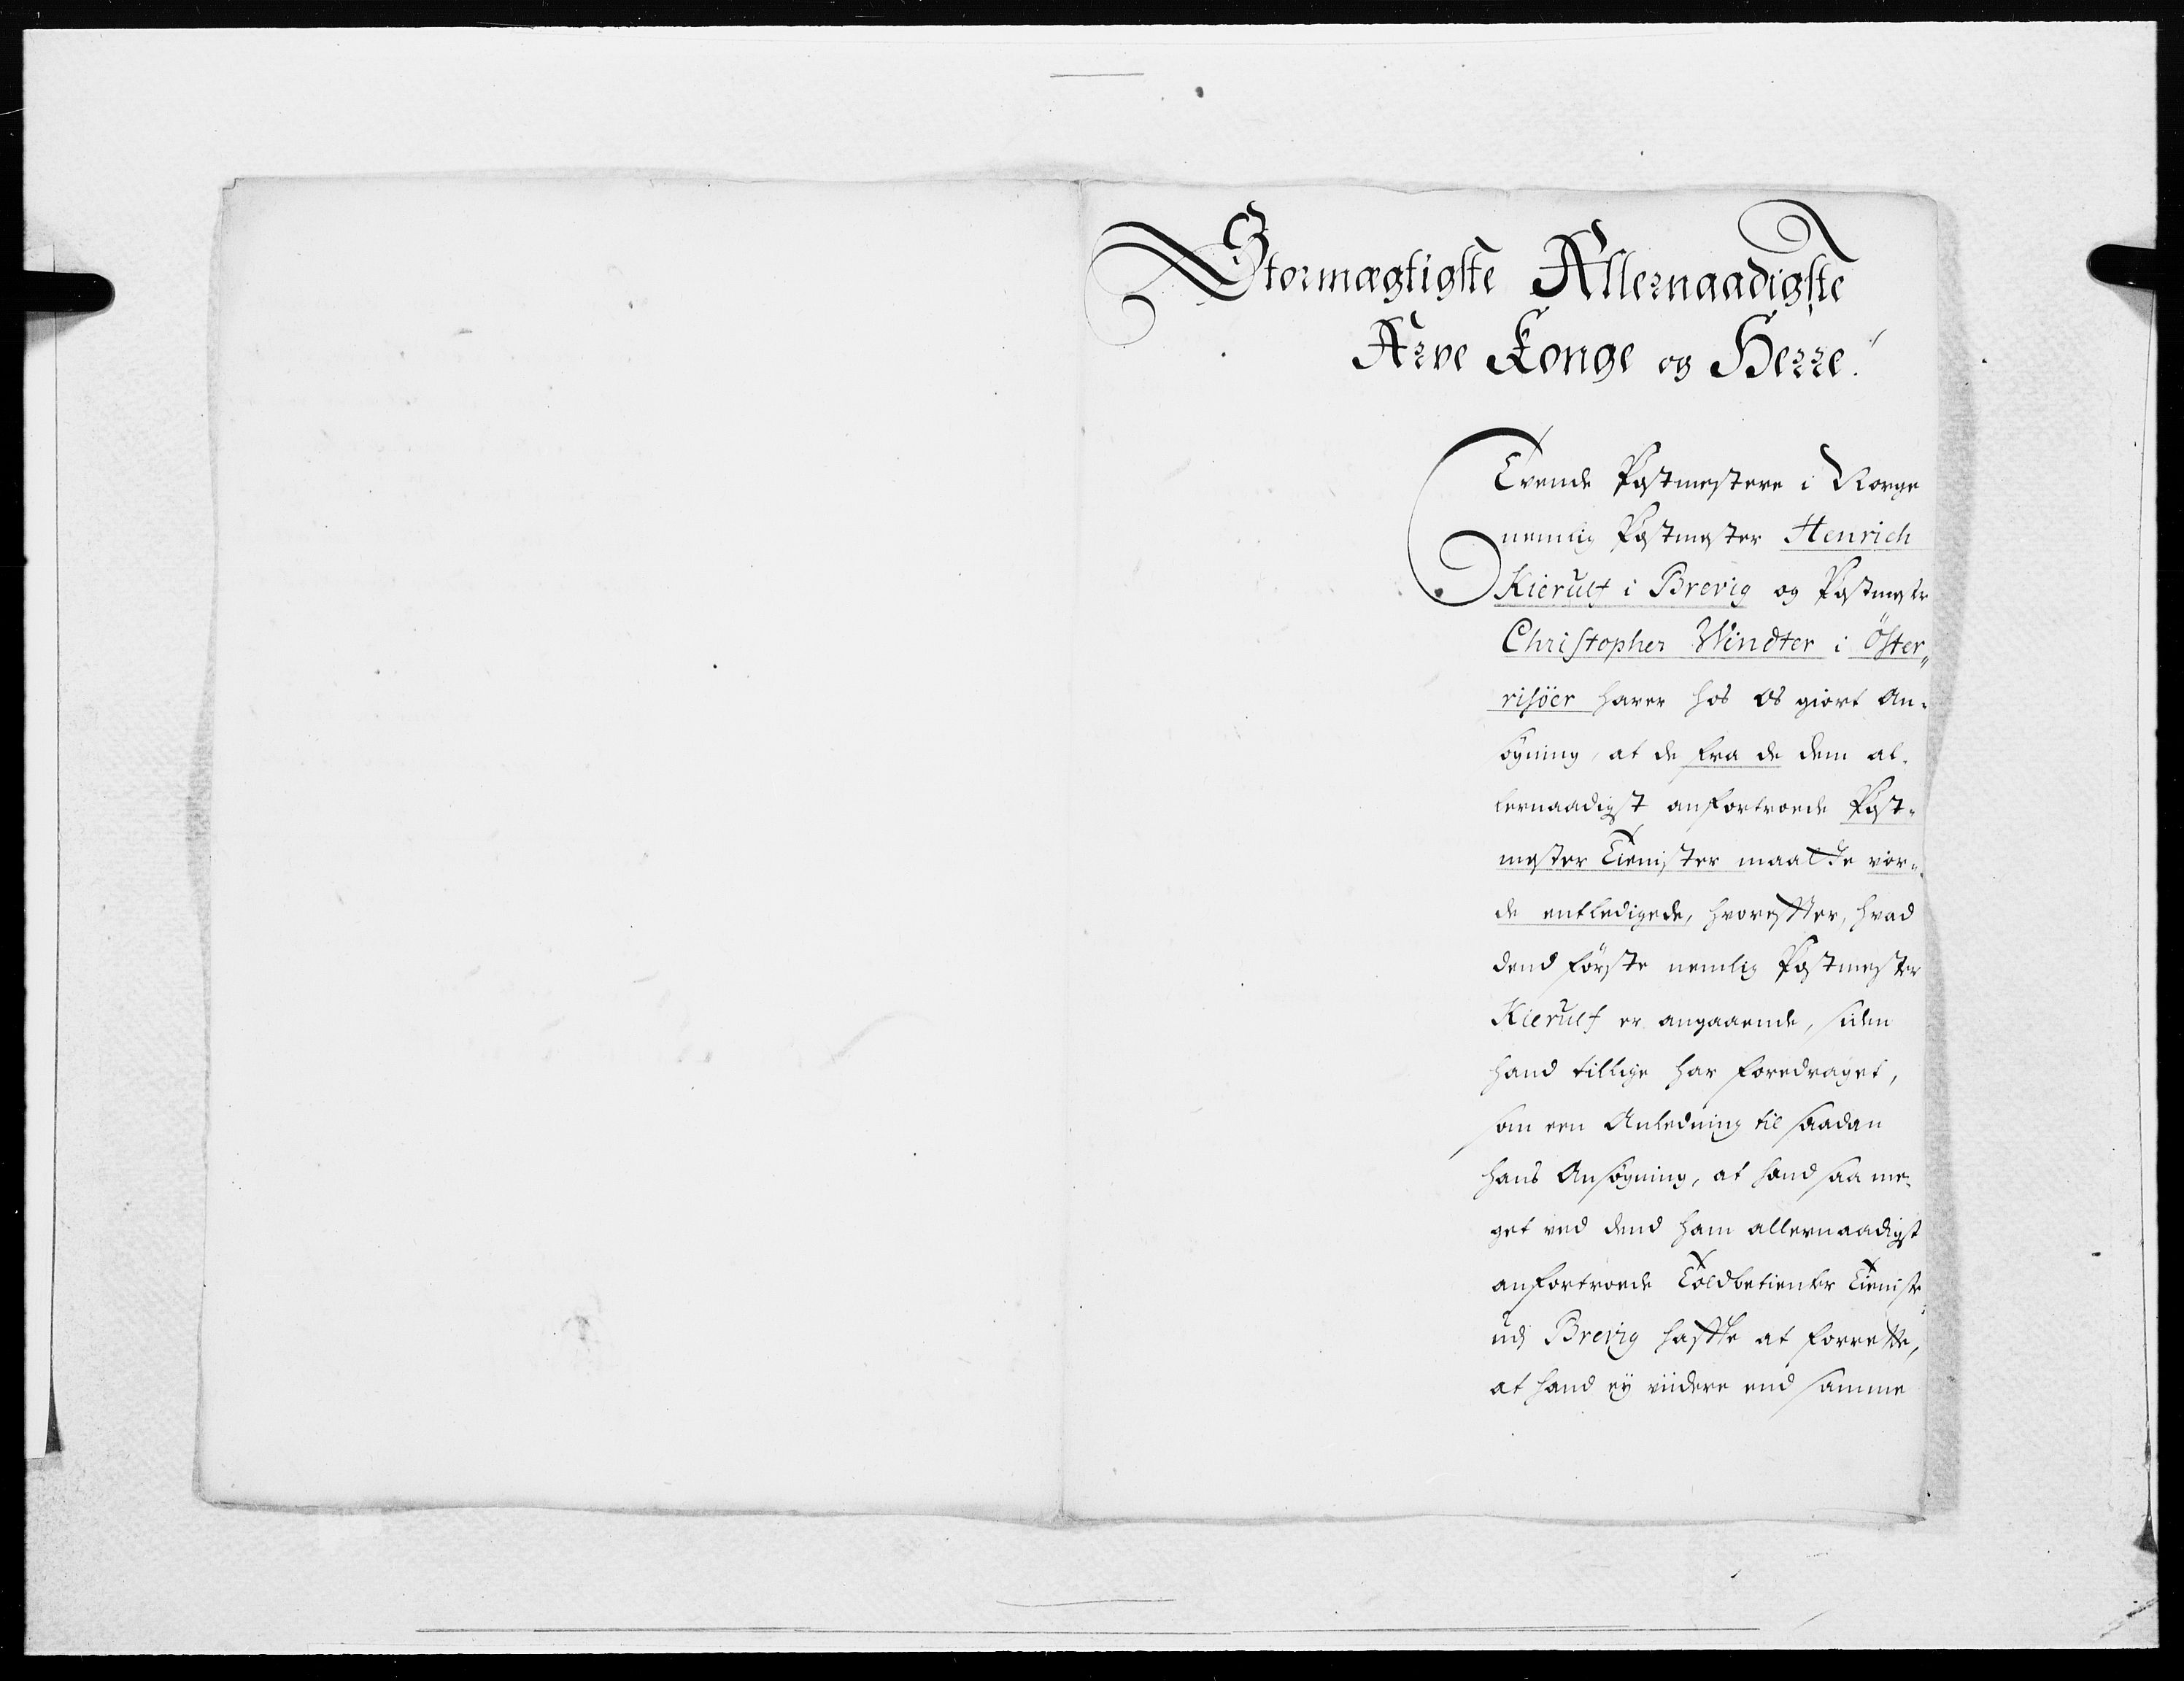 Stormægtigste Allernaadigste
Arve Konge og Herre!
Tvende Postmestere i Norge
nemlig Postmester Henrich
Kierulf i Brevig og Postmester
Christopher Windter i Öster„
risöer haver hos Os giort An-
søgning, at de fra de dem al-
lernaadigst anfortroede Post-
mester Tienister maatte vor-
de entledigede, hvorefter, hvad
dend förste nemlig Postmester
Kierulf er angaaende, siden
hand tillige har foredraget,
som een Anledning til saadan
hans Ansøgning, at hand saa me-
get ved dend ham allernaadigst
anfortroede Toldbetienter Tieniste
udj Brevig hafde at forrette,
at hand ey viidere end samme